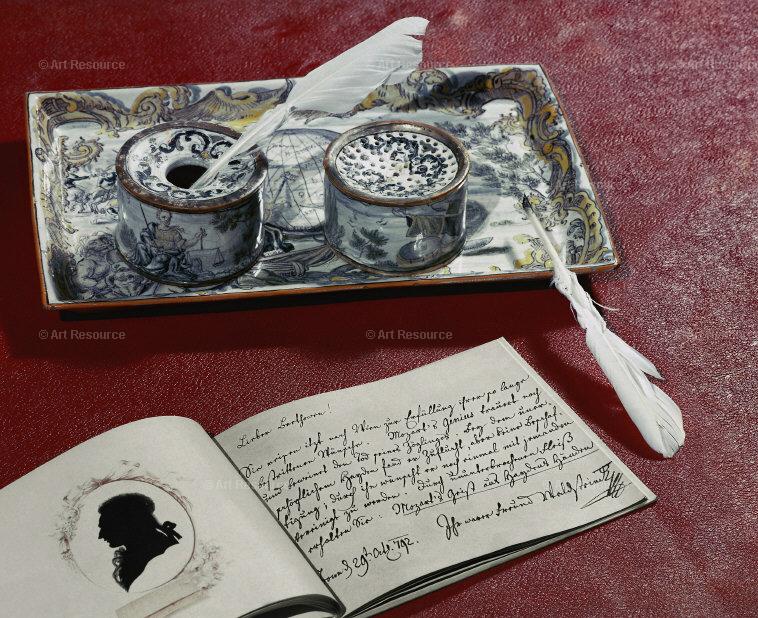 © Art Resource
© Art Resource
© Art Resource
© Art Resource
© Art Resource
© Art Resource
Lieber Beethowen!
Sie reisen itzt nach Wien zur Erfüllung ihrer so lange
bestrittenen Wünsche. Mozart's Genius trauert noch
und beweinet den Tod seines Zöglinges. Bey dem uner-
schöpflichem Haydn fand er Zuflucht, aber keine Beschäf-
tigung; durch ihn wünscht er noch einmal mit jemanden
vereinigt zu werden. Durch ununterbrochenen Fleiß
erhalten Sie: Mozart's Geist aus Haydens Händen
Ihr warer Freund Waldstein
Bonn d 29t Oct. 792.